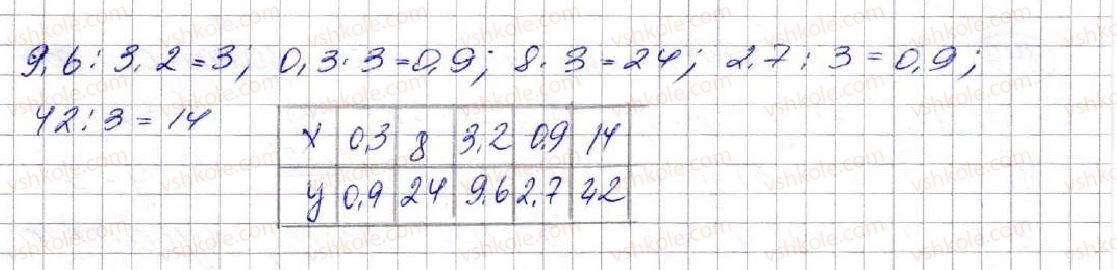 9,6 : 3,2 = 3; 0,3 · 3 = 0,9; 8 · 3 = 24; 2,7 : 3 = 0,9;
42 : 3 = 14
x 0,3 8 3,2 0,9 14
y 0,9 24 9,6 2,7 42